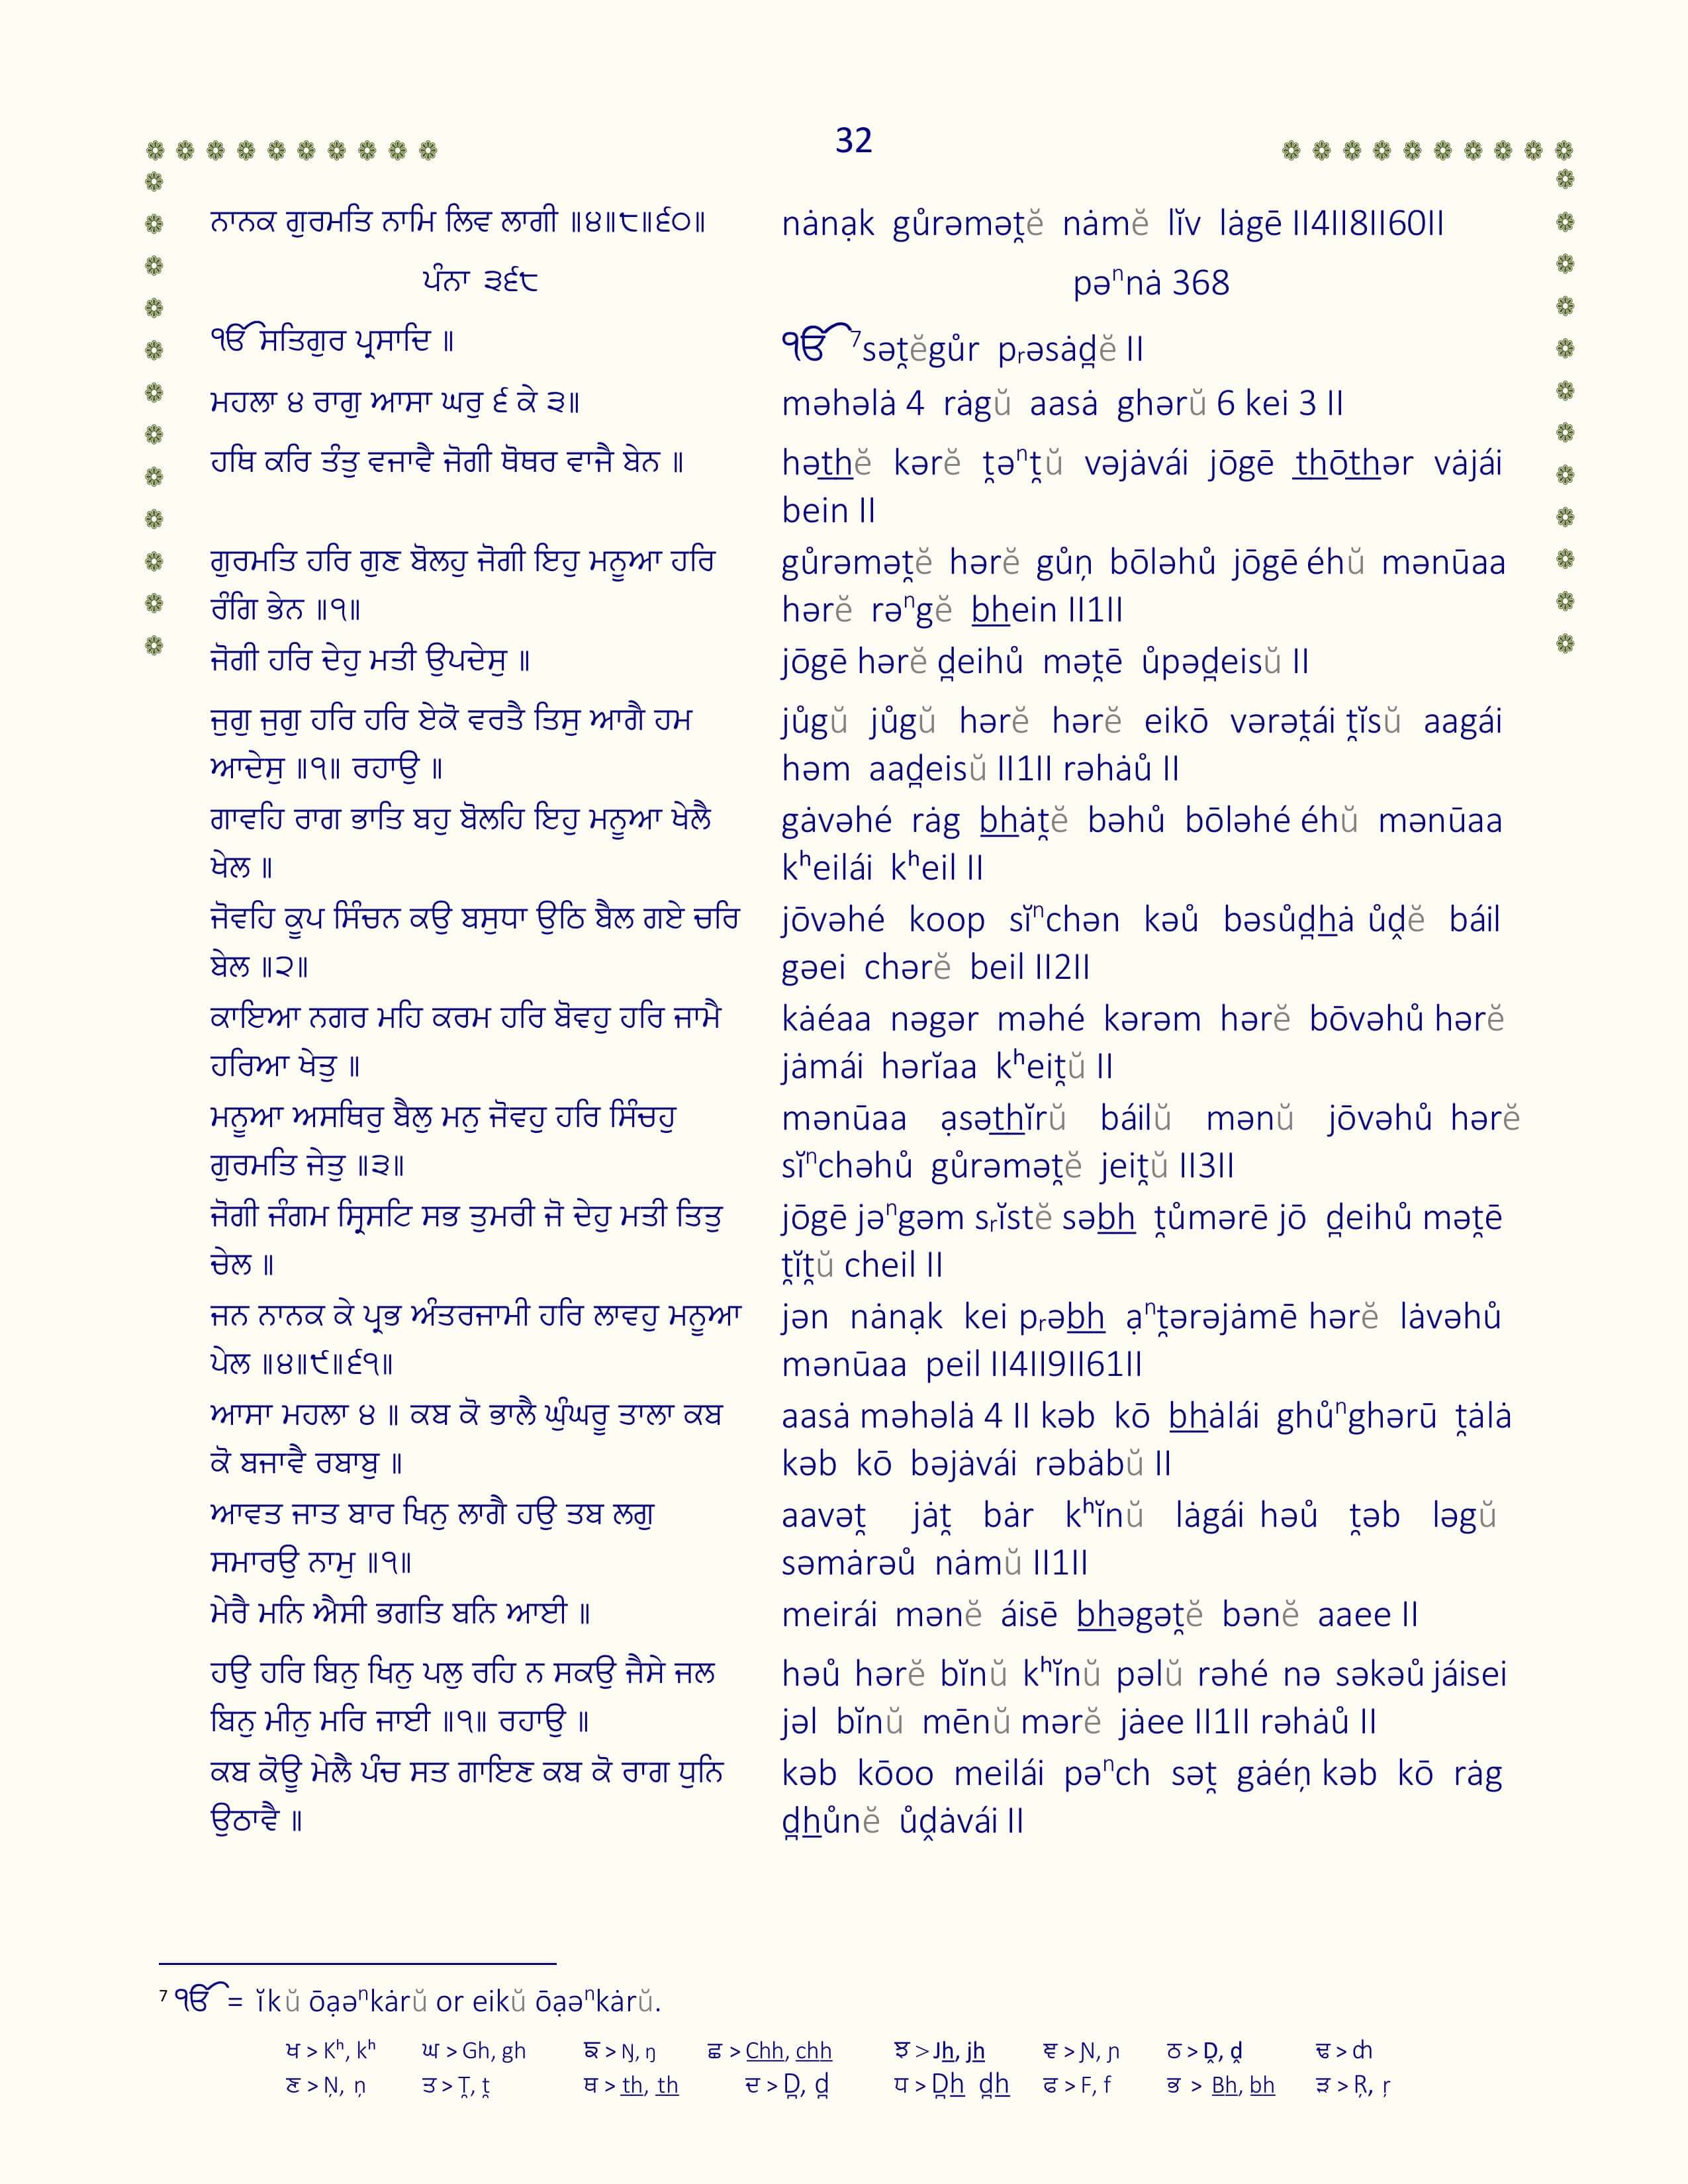 32
ਨਾਨਕ ਗੁਰਮਤਿ ਨਾਮਿ ਲਿਵ ਲਾਗੀ ॥੪॥੮॥੬੦॥
nȧnạk gůrəmət̯ĕ nȧmĕ lĭv lȧgē II4II8II60II
ਪੰਨਾ ੩੬੮
pəⁿnȧ 368
ੴ ਸਤਿਗੁਰ ਪ੍ਰਸਾਦਿ ॥
ੴ ⁷sət̯ĕgůr pᵣəsȧd̪ĕ II
ਮਹਲਾ ੪ ਰਾਗੁ ਆਸਾ ਘਰੁ ੬ ਕੇ ੩॥
məhəlȧ 4 rȧgŭ aasȧ ghərŭ 6 kei 3 II
ਹਥਿ ਕਰਿ ਤੰਤੁ ਵਜਾਵੈ ਜੋਗੀ ਥੋਥਰ ਵਾਜੈ ਬੇਨ ॥
hət͟h͟ĕ kərĕ t̯əⁿt̯ŭ vəjȧvái jōgē t͟h͟ōt͟h͟ər vȧjái
bein II
ਗੁਰਮਤਿ ਹਰਿ ਗੁਣ ਬੋਲਹੁ ਜੋਗੀ ਇਹੁ ਮਨੂਆ ਹਰਿ
ਰੰਗਿ ਭੇਨ ॥੧॥
gůrəmət̯ĕ hərĕ gůņ bōləhů jōgē éhŭ mənūaa
hərĕ rəⁿgĕ b͟h͟ein II1II
ਜੋਗੀ ਹਰਿ ਦੇਹੁ ਮਤੀ ਉਪਦੇਸੁ ॥
jōgē hərĕ d̪eihů mət̯ē ůpəd̪eisŭ II
ਜੁਗੁ ਜੁਗੁ ਹਰਿ ਹਰਿ ਏਕੋ ਵਰਤੈ ਤਿਸੁ ਆਗੈ ਹਮ
ਆਦੇਸੁ ॥੧॥ ਰਹਾਉ ॥
jůgŭ jůgŭ hərĕ hərĕ eikō vərət̯ái t̯ĭsŭ aagái
həm aad̪eisŭ II1II rəhȧů II
ਗਾਵਹਿ ਰਾਗ ਭਾਤਿ ਬਹੁ ਬੋਲਹਿ ਇਹੁ ਮਨੂਆ ਖੇਲੈ
ਖੇਲ ॥
gȧvəhé rȧg b͟h͟ȧt̯ĕ bəhů bōləhé éhŭ mənūaa
kʰeilái kʰeil II
ਜੋਵਹਿ ਕੂਪ ਸਿੰਚਨ ਕਉ ਬਸੁਧਾ ਉਠਿ ਬੈਲ ਗਏ ਚਰਿ
ਬੇਲ ॥੨॥
jōvəhé koop sĭⁿchən kəů bəsůd̪h͟ȧ ůḓĕ báil
gəei chərĕ beil II2II
ਕਾਇਆ ਨਗਰ ਮਹਿ ਕਰਮ ਹਰਿ ਬੋਵਹੁ ਹਰਿ ਜਾਮੈ
ਹਰਿਆ ਖੇਤੁ ॥
kȧéaa nəgər məhé kərəm hərĕ bōvəhů hərĕ
jȧmái hərĭaa kʰeit̯ŭ II
ਮਨੂਆ ਅਸਥਿਰੁ ਬੈਲੁ ਮਨੁ ਜੋਵਹੁ ਹਰਿ ਸਿੰਚਹੁ
ਗੁਰਮਤਿ ਜੇਤੁ ॥੩॥
mənūaa ạsət͟h͟ĭrŭ báilŭ mənŭ jōvəhů hərĕ
sĭⁿchəhů gůrəmət̯ĕ jeit̯ŭ II3II
ਜੋਗੀ ਜੰਗਮ ਸ੍ਰਿਸਟਿ ਸਭ ਤੁਮਰੀ ਜੋ ਦੇਹੁ ਮਤੀ ਤਿਤੁ
ਚੇਲ ॥
jōgē jəⁿgəm sᵣĭstĕ səb͟h͟ t̯ůmərē jō d̪eihů mət̯ē
t̯ĭt̯ŭ cheil II
ਜਨ ਨਾਨਕ ਕੇ ਪ੍ਰਭ ਅੰਤਰਜਾਮੀ ਹਰਿ ਲਾਵਹੁ ਮਨੂਆ
ਪੇਲ ॥੪॥੯॥੬੧॥
jən nȧnạk kei pᵣəb͟h͟ ạⁿt̯ərəjȧmē hərĕ lȧvəhů
mənūaa peil II4II9II61II
ਆਸਾ ਮਹਲਾ ੪ ॥ ਕਬ ਕੋ ਭਾਲੈ ਘੁੰਘਰੂ ਤਾਲਾ ਕਬ
ਕੋ ਬਜਾਵੈ ਰਬਾਬੁ ॥
aasȧ məhəlȧ 4 II kəb kō b͟h͟ȧlái ghůⁿghərū t̯ȧlȧ
kəb kō bəjȧvái rəbȧbŭ II
ਆਵਤ ਜਾਤ ਬਾਰ ਖਿਨੁ ਲਾਗੈ ਹਉ ਤਬ ਲਗੁ
ਸਮਾਰਉ ਨਾਮੁ ॥੧॥
aavət̯ jȧt̯ bȧr kʰĭnŭ lȧgái həů t̯əb ləgŭ
səmȧrəů nȧmŭ II1II
ਮੇਰੈ ਮਨਿ ਐਸੀ ਭਗਤਿ ਬਨਿ ਆਈ ॥
meirái mənĕ áisē b͟h͟əgət̯ĕ bənĕ aaee II
ਹਉ ਹਰਿ ਬਿਨੁ ਖਿਨੁ ਪਲੁ ਰਹਿ ਨ ਸਕਉ ਜੈਸੇ ਜਲ
ਬਿਨੁ ਮੀਨੁ ਮਰਿ ਜਾਈ ॥੧॥ ਰਹਾਉ ॥
həů hərĕ bĭnŭ kʰĭnŭ pəlŭ rəhé nə səkəů jáisei
jəl bĭnŭ mēnŭ mərĕ jȧee II1II rəhȧů II
ਕਬ ਕੋਊ ਮੇਲੈ ਪੰਚ ਸਤ ਗਾਇਣ ਕਬ ਕੋ ਰਾਗ ਧੁਨਿ
ਉਠਾਵੈ ॥
kəb kōoo meilái pəⁿch sət̯ gȧéņ kəb kō rȧg
d̪h͟ůnĕ ůḓȧvái II
⁷ ੴ = ĭkŭ ōạəⁿkȧrŭ or eikŭ ōạəⁿkȧrŭ.
ਖ > Kʰ, kʰ ਘ > Gh, gh ਙ > Ŋ, ŋ ਛ > C͟h͟h͟, c͟h͟h͟ ਝ > Jh͟, jh͟ ਞ > Ɲ, ɲ ਠ > Ḓ, ḓ ਢ > ȸh
ਣ > Ņ, ņ ਤ > T̯, t̯ ਥ > t͟h͟, t͟h͟ ਦ > D̪, d̪ ਧ > D̪h͟ d̪h͟ ਫ > F, f ਭ > B͟h͟, b͟h͟ ੜ > Ŗ, ŗ